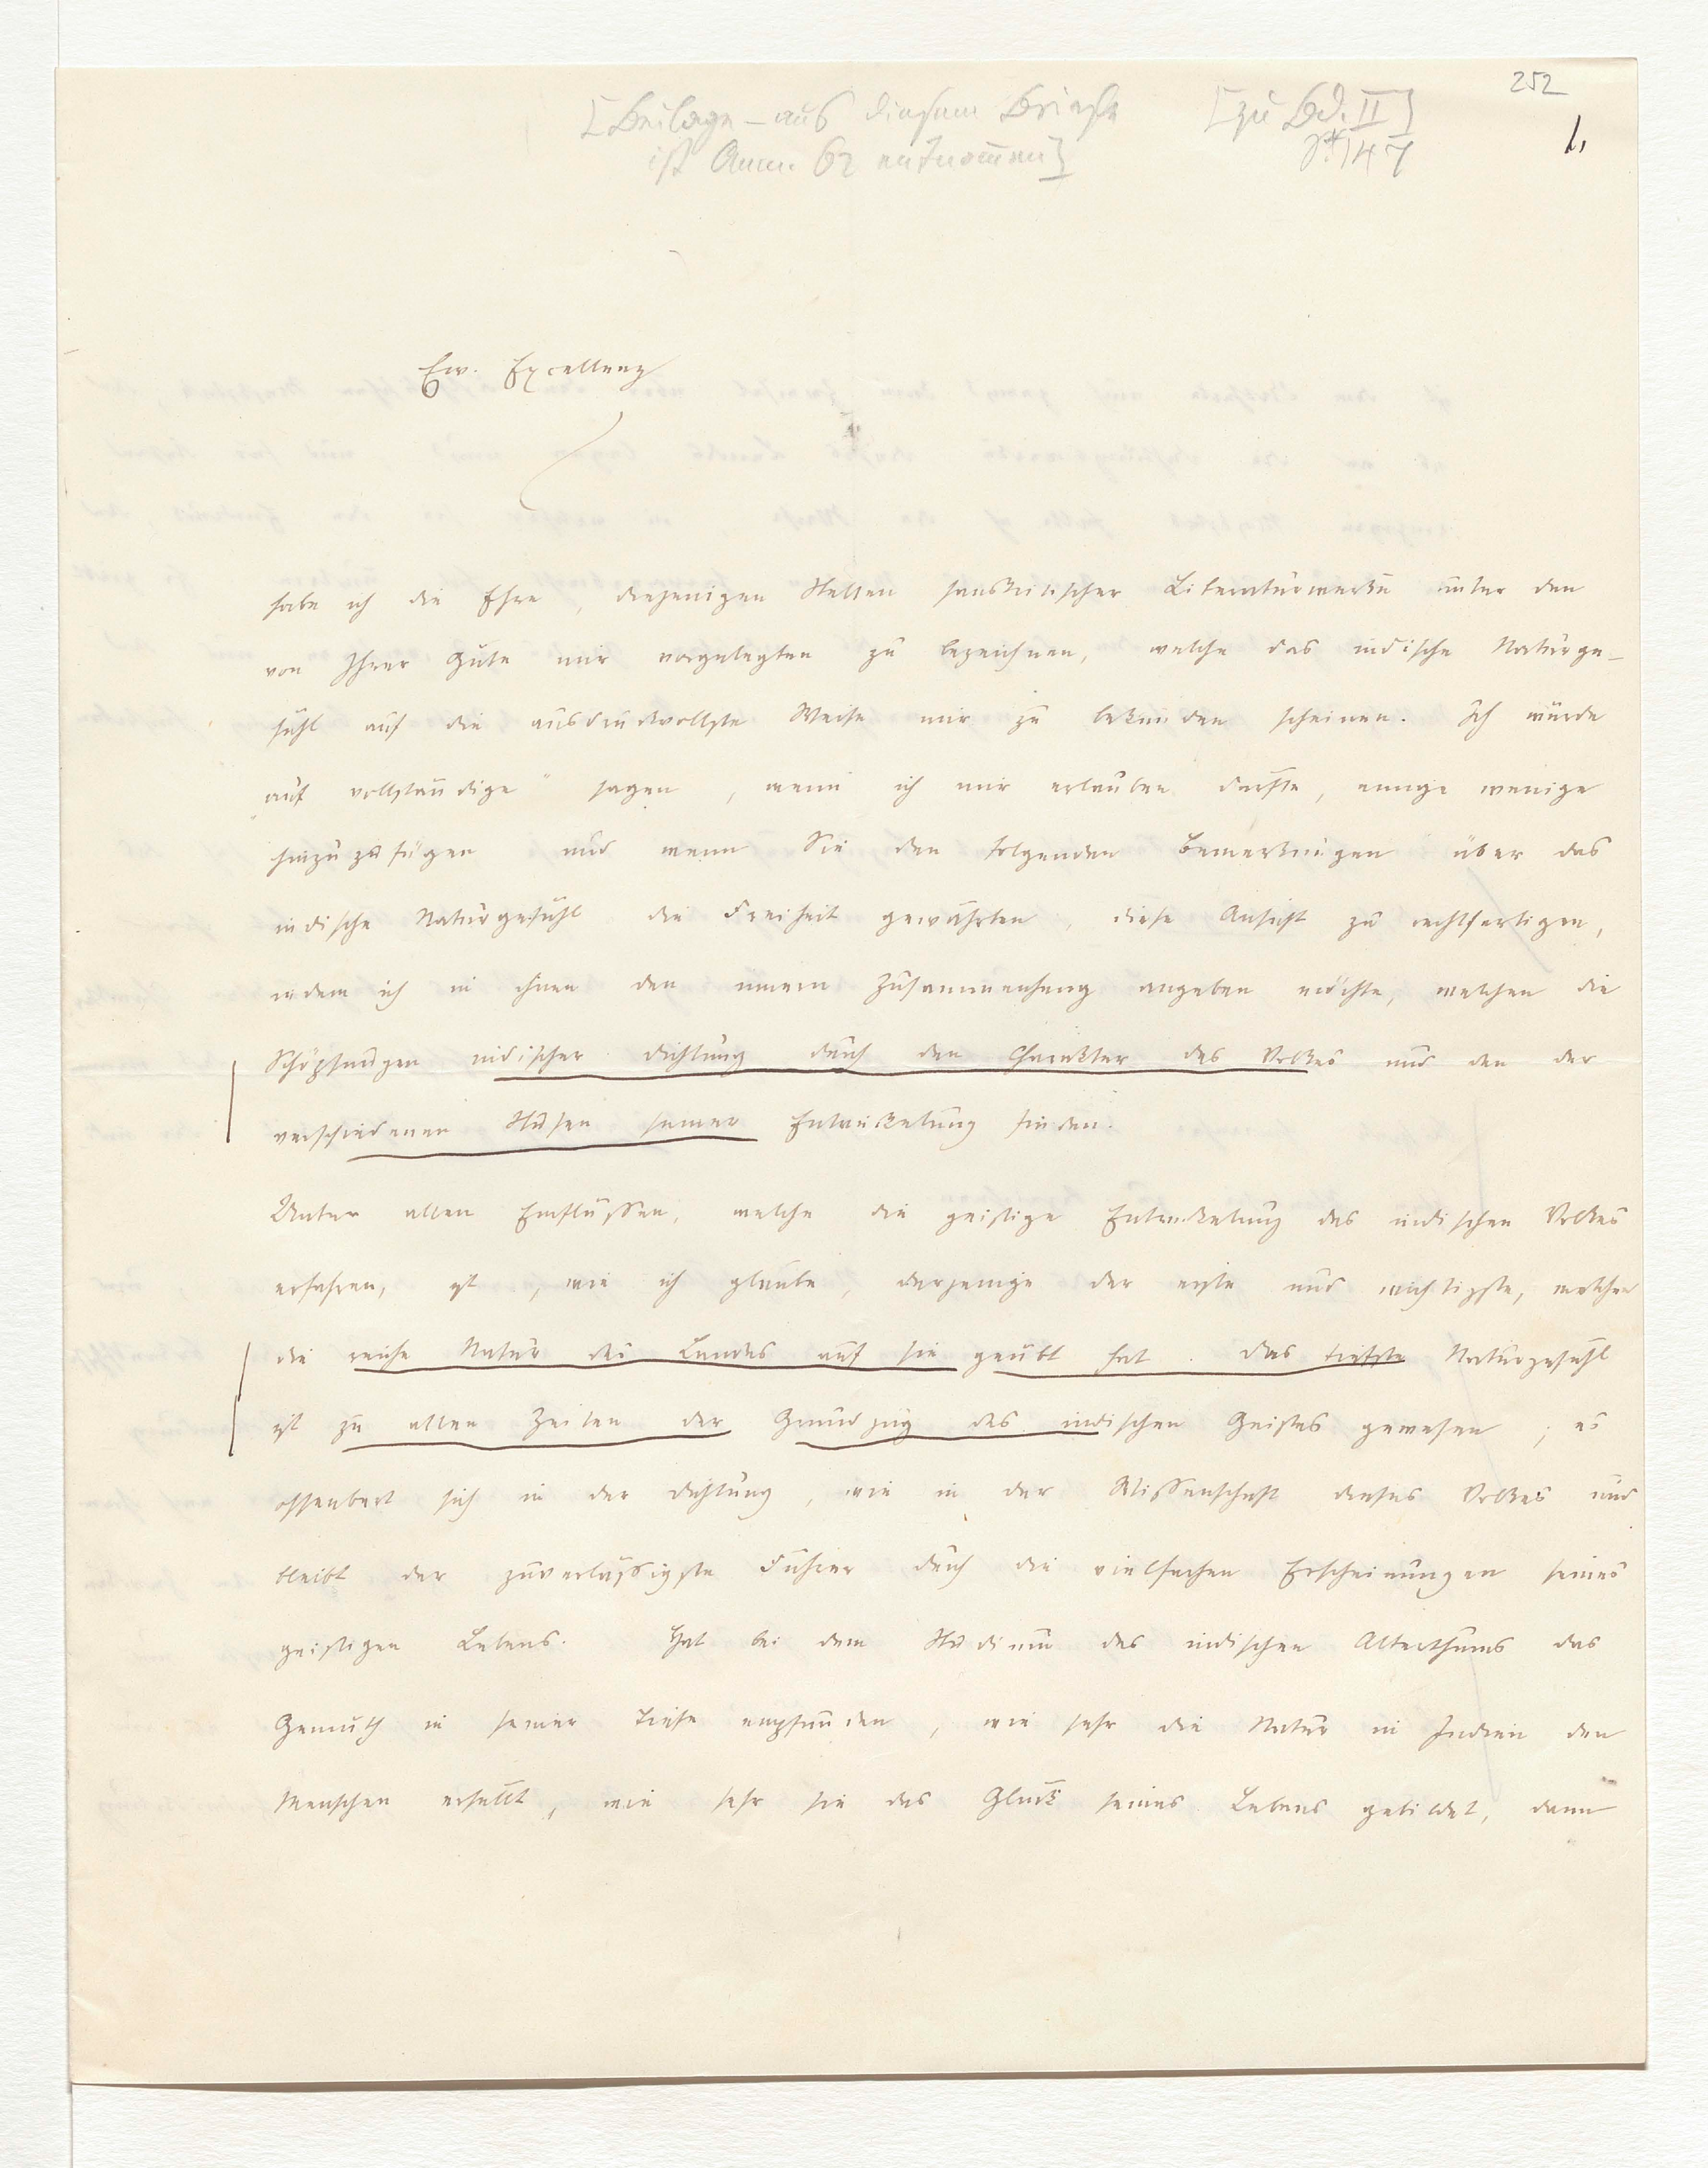 252
[Beilage – aus diesem Briefe [zu Bd. II]
ist Anm. 62 entnommen] S. 147
1.
Ew. Excellenz
habe ich die Ehre, diejenigen Stellen sanskritischer Literaturwerke unter den
von Ihrer Güte mir vorgelegten zu bezeichnen, welche das indische Naturge-
fühl auf die ausdruckvollste Weise mir zu bekunden scheinen. Ich würde
„auf vollständige" sagen, wenn ich mir erlauben dürfte, einige wenige
hinzuzufügen und wenn Sie den folgenden Bemerkungen über das
indische Naturgefühl die Freiheit gewährten, diese Ansicht zu rechtfertigen,
indem ich in ihnen den innern Zusammenhang angeben möchte, welchen die
Schöpfungen indischer Dichtung durch den Charakter des Volkes und den der
verschiedenen Stufen seiner Entwickelung finden.
Unter allen Einflüssen, welche die geistige Entwickelung des indischen Volkes
erfahren, ist, wie ich glaube, derjenige der erste und wichtigste, welchen
die reiche Natur des Landes auf sie geübt hat. Das tiefste Naturgefühl
ist zu allen Zeiten der Grundzug des indischen Geistes gewesen; es
offenbart sich in der Dichtung, wie in der Wissenschaft dieses Volkes und
bleibt der zuverlässigste Führer durch die vielfachen Erscheinungen seines
geistigen Lebens. Hat bei dem Studium des indischen Alterthums das
Gemüth in seiner Tiefe empfunden, wie sehr die Natur in Indien den
Menschen erfüllt, wie sehr sie das Glück seines Lebens gebildet, dann